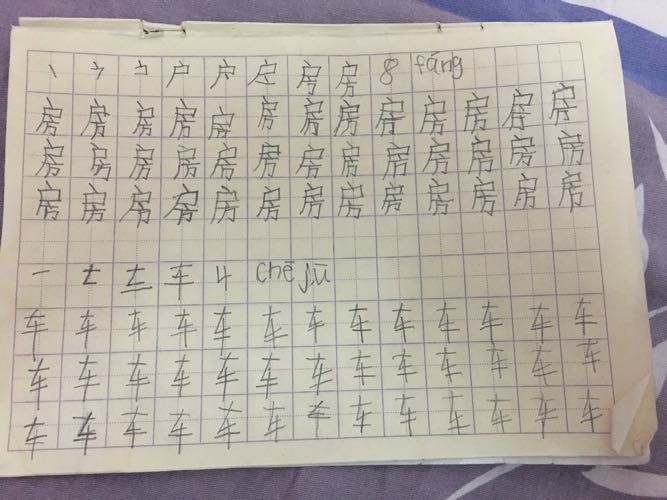 丶 户 房 8 fáng
房 房 房 房 房 房 房 房 房 房 房 房 房
房 房 房 房 房 房 房 房 房 房 房 房 房
房 房 房 房 房 房 房 房 房 房 房 房 房
一 车 4 chē jū
车 车 车 车 车 车 车 车 车 车 车 车 车
车 车 车 车 车 车 车 车 车 车 车 车 车
车 车 车 车 车 车 车 车 车 车 车 车